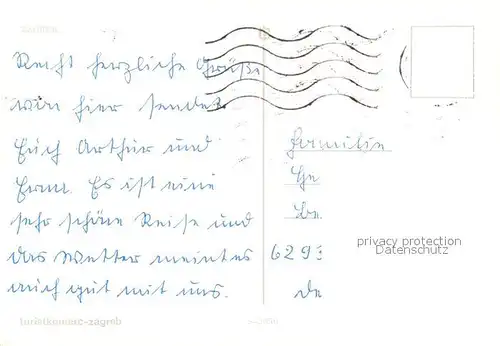 Recht herzliche Grüße
von hier sendet
Euch Arthur und
Es ist eine
sehr schöne Reise und
das Wetter meint es
auch gut mit uns.
Familie
629
privacy protection
Datenschutz
turistkomerc-zagreb